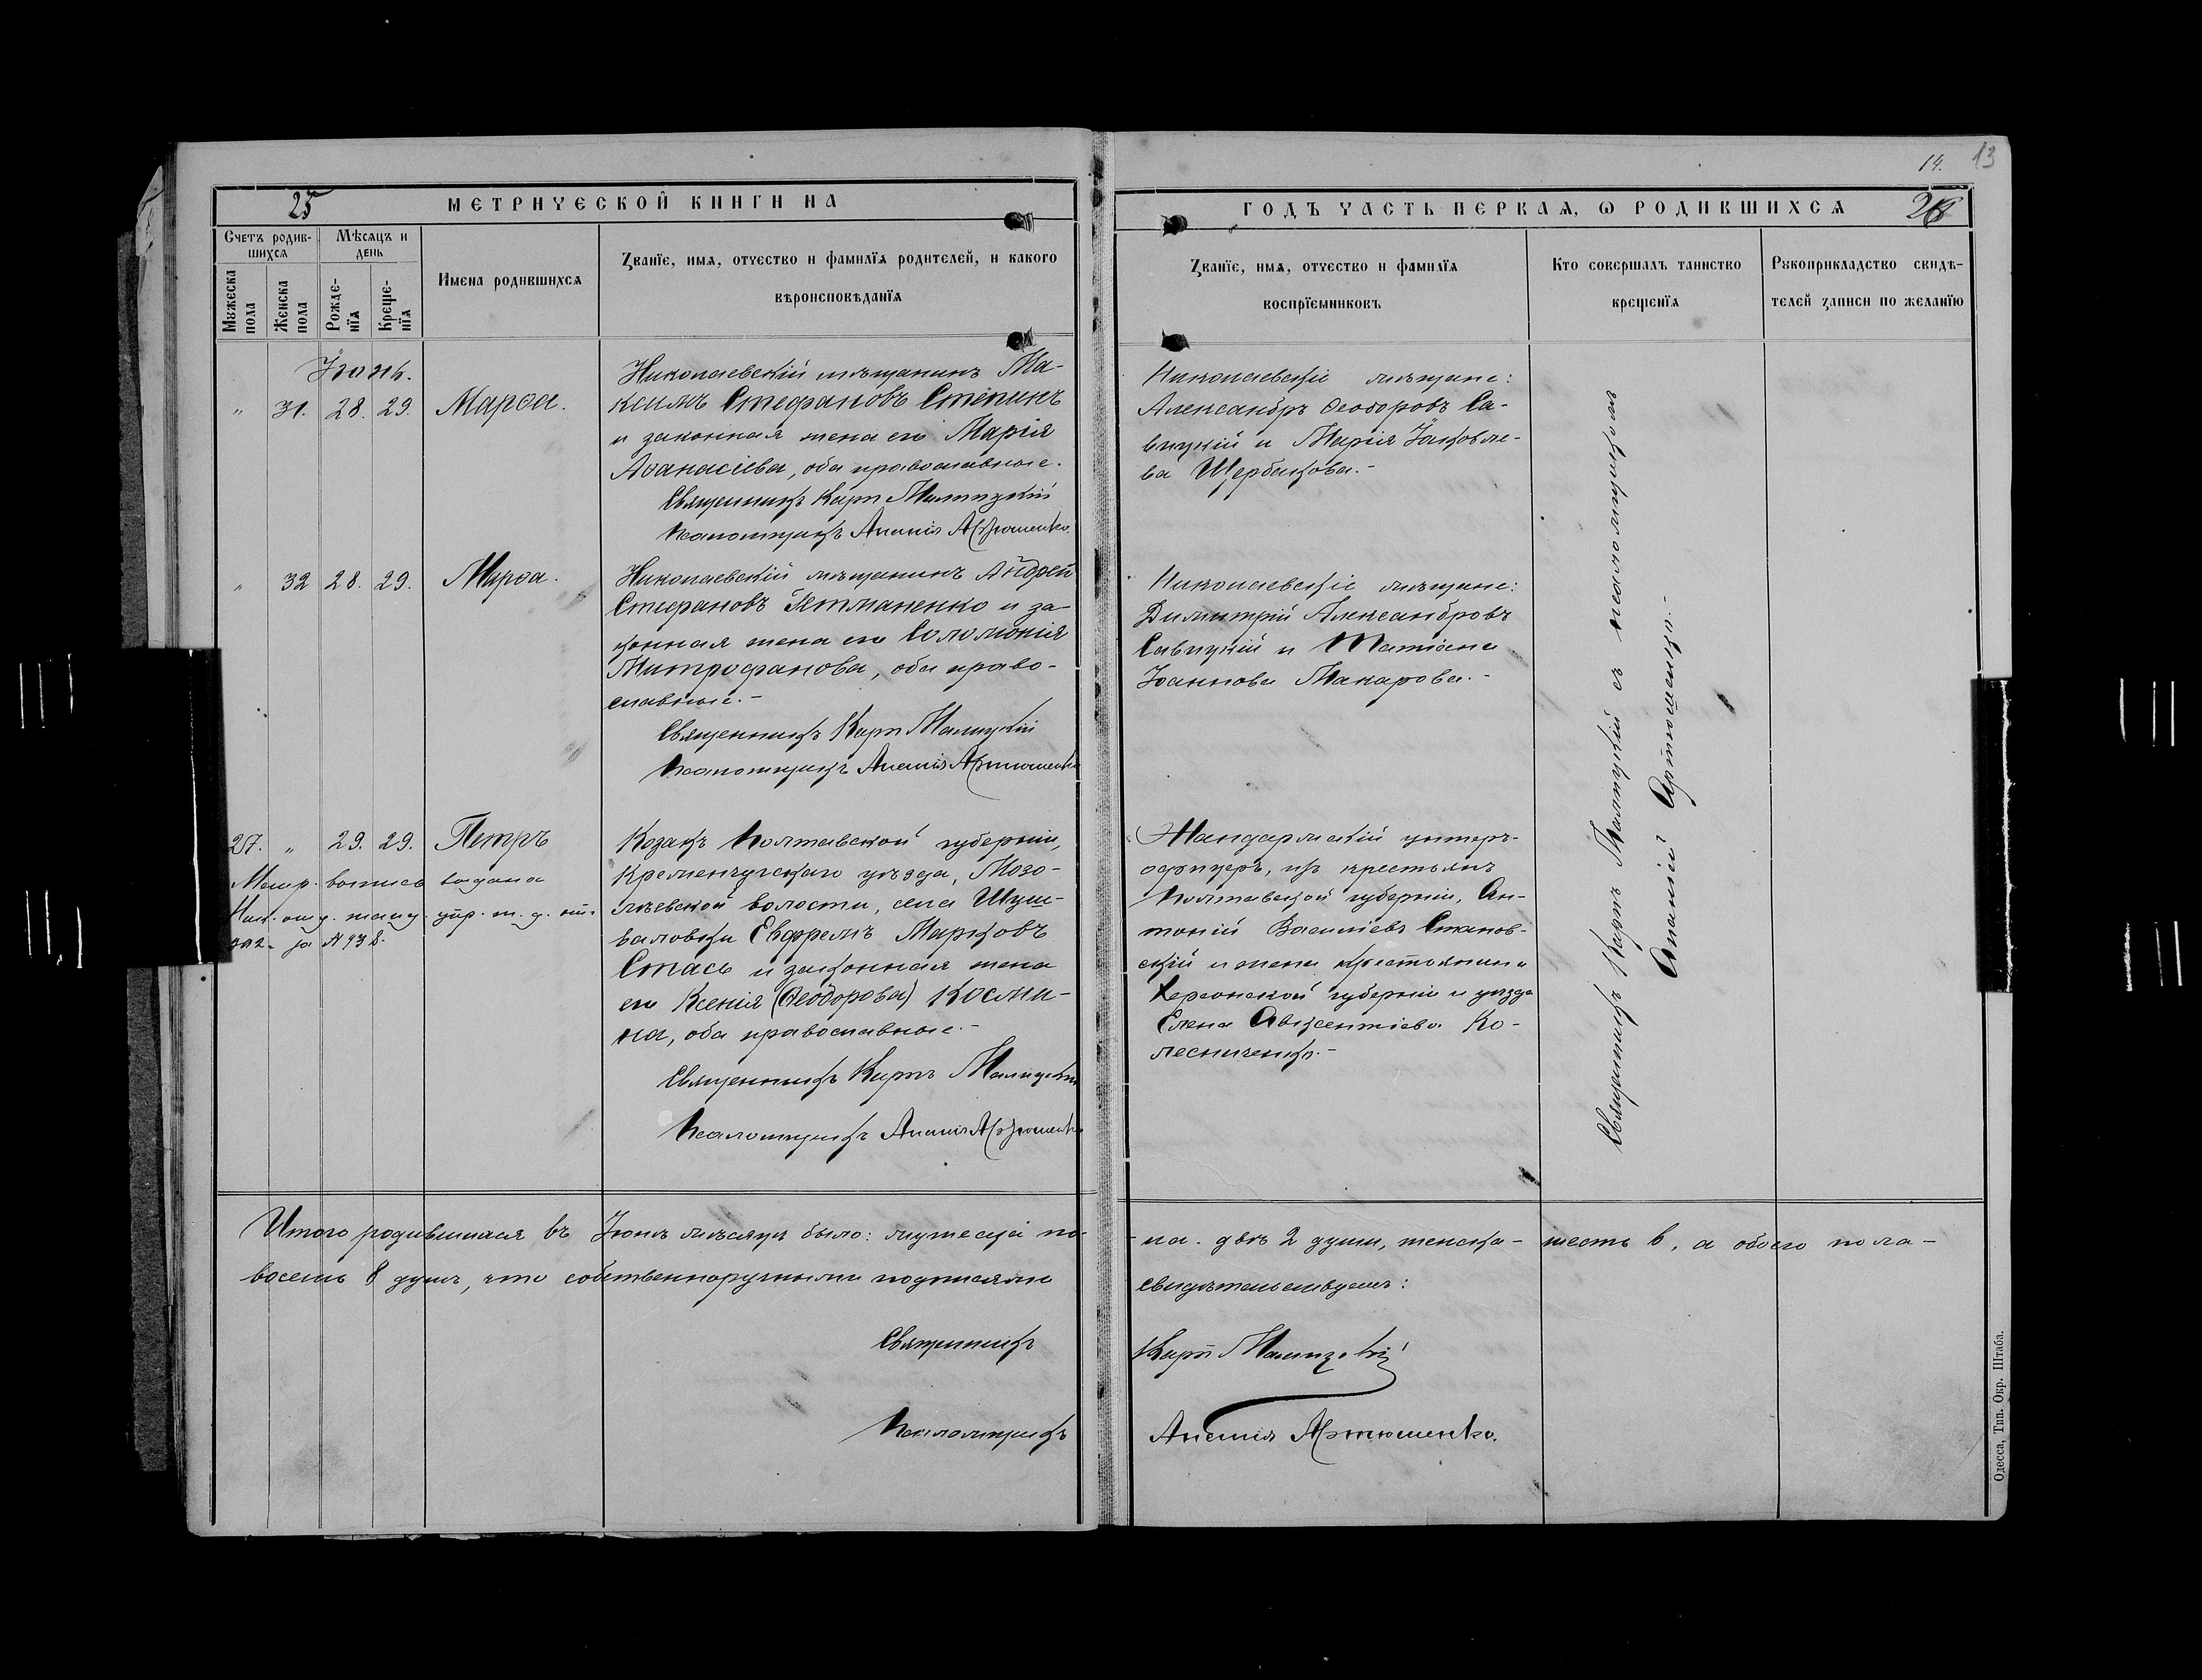 14. 13
25 МЕТРИЧЕСКОЙ КНИГИ НА
ГОДЪ ЧАСТЬ ПЕРВАЯ, Ѡ РОДИВШИХСЯ
Счетъ родив-
шихся
Мѣсяцъ и
день
Мужеска
пола
Женска
пола
Рожде-
нїя
Креще-
нїя
Имена родившихся
Званїе, имя, отчество и фамилїя родителей, и какого
вѣроисповѣданїя
Званїе, имя, отчество и фамилїя
воспрїемниковъ
Кто совершалъ таинство
крещенїя
Рукоприкладство свидѣ-
телей записи по желанїю
Іюнь.
" 31. 28. 29. Марѳа.
Николаевскій мѣщанинъ Ма-
ксимъ Стефановъ Стёпинъ
и законная жена его Марія
Аѳанасіева, оба православные.
Священникъ Карпъ Малицкій
Псаломщикъ Ананія Артюшенко.
Николаевскіе мѣщане:
Александръ Ѳеодоровъ Са-
вицкій и Марія Іаковле-
ва Щербакова.-
" 32 28. 29. Марѳа.
Николаевскій мѣщанинъ Андрей
Стефановъ Гетманенко и за-
конная жена его Соломонія
Митрофанова, оба право-
славные.-
Священникъ Карпъ Малицкій
Псаломщикъ Ананія Артюшенко
Николаевскіе мѣщане:
Димитрій Александровъ
Савицкій и Татіана
Іоаннова Макарова.-
27. " 29. 29. Петръ
Метр. выпись выдана
Ник. отд. жанд. упр. ж. д.
за № 938.
Козакъ Полтавской губерніи,
Кременчугскаго уѣзда, Позо-
лѣевской волости, села Шуш-
валовки Евфремъ Марковъ
Стась и законная жена
его Ксенія (Ѳеодорова) Косми-
на, оба православные.-
Священникъ Карпъ Малицкій
Псаломщикъ Ананія Артюшенко
Жандармскій унтеръ-
офицеръ, изъ крестьянъ
Полтавской губерніи, Ан-
тоній Василіевъ Станов-
скій и жена крестьянина
Херсонской губерніи и уѣзда
Елена Авксентіева Ко-
лесниченко.-
Священникъ Карпъ Малицкій съ псаломщикомъ
Ананіей Артюшенко.-
Итого родившихся въ Іюнѣ мѣсяцѣ было: мужеска по-
ла - двѣ 2 души, женска - шесть 6, а обоего пола -
восемь 8 душъ, что собственноручными подписями
свидѣтельствуемъ:
Священникъ Карпъ Малицкій
Псаломщикъ Ананія Артюшенко.
Одесса, Тип. Окр. Штаба.